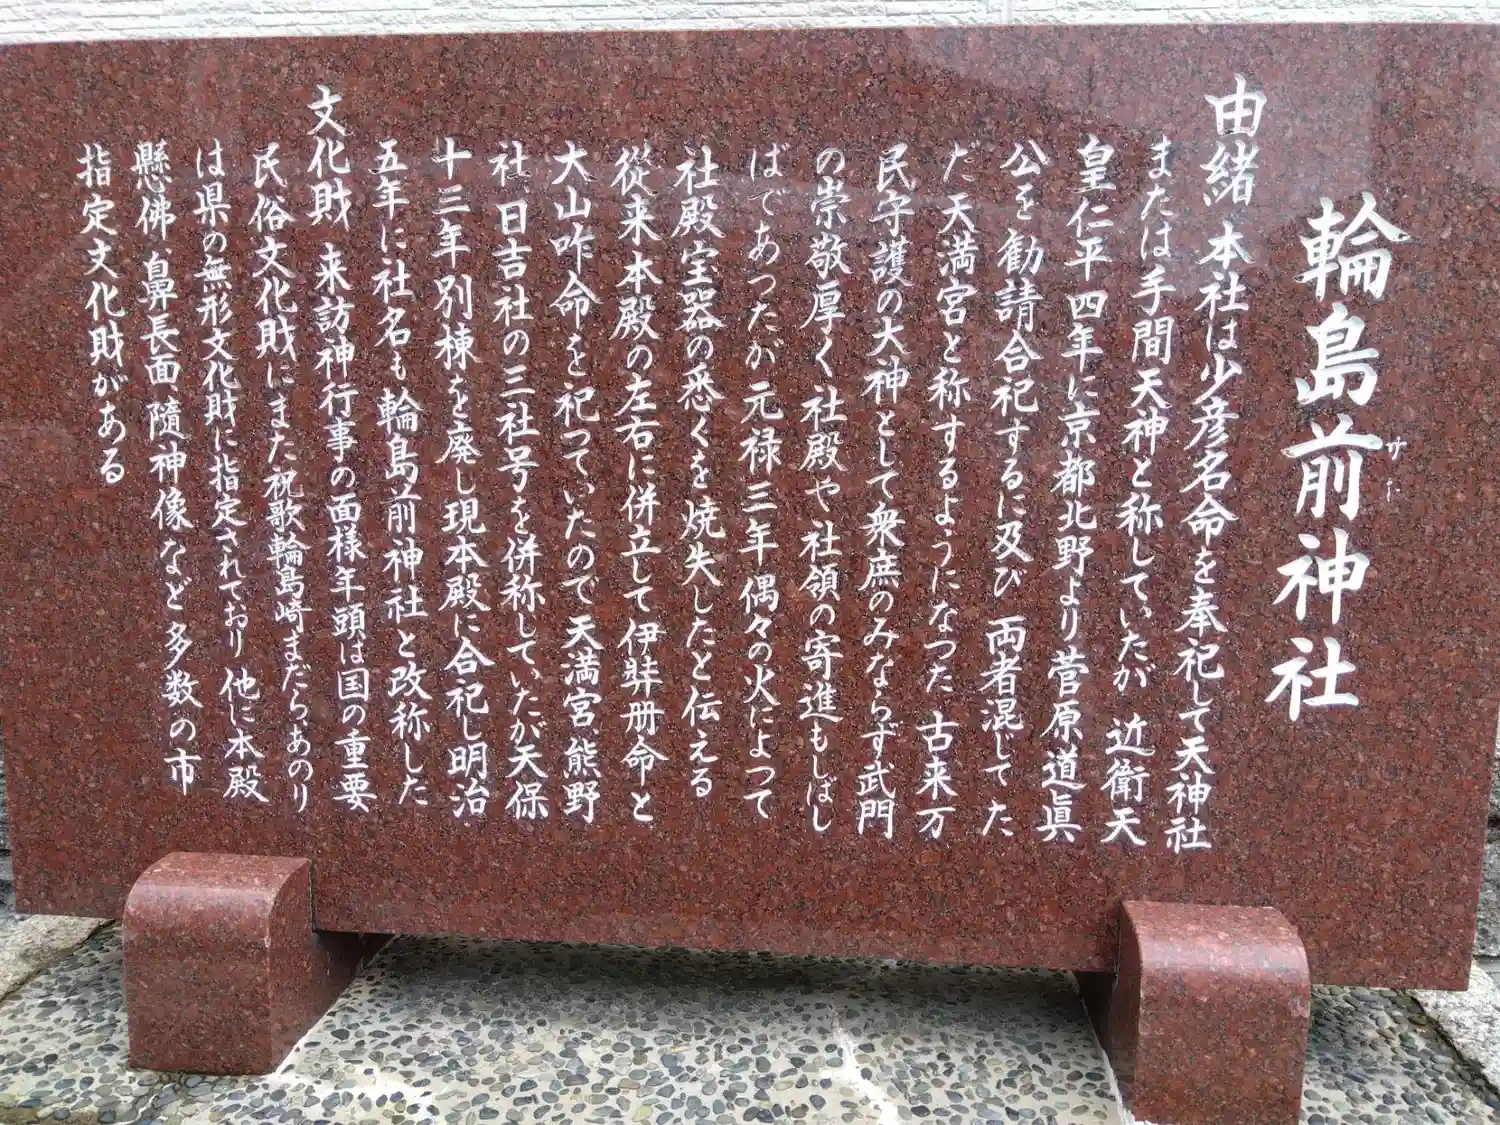 輪島前神社
サキ
由緒 本社は少彦名命を奉祀して天神社
または手間天神と称していたが 近衛天
皇仁平四年に京都北野より菅原道眞
公を勧請合祀するに及び 両者混じてた
だ天満宮と称するようになつた 古来万
民守護の大神として衆庶のみならず武門
の崇敬厚く社殿や社領の寄進もしばし
ばであつたが元禄三年偶々の火によつて
社殿宝器の悉くを焼失したと伝える
従来本殿の左右に併立して伊弉册命と
大山咋命を祀つていたので天満宮、熊野
社、日吉社の三社号を併称していたが天保
十三年別棟を廃し現本殿に合祀し明治
五年に社名も輪島前神社と改称した
文化財 来訪神行事の面様年頭は国の重要
民俗文化財にまた祝歌輪島崎まだらあのり
は県の無形文化財に指定されており 他に本殿
懸佛 鼻長面 隨神像など多数の市
指定文化財がある